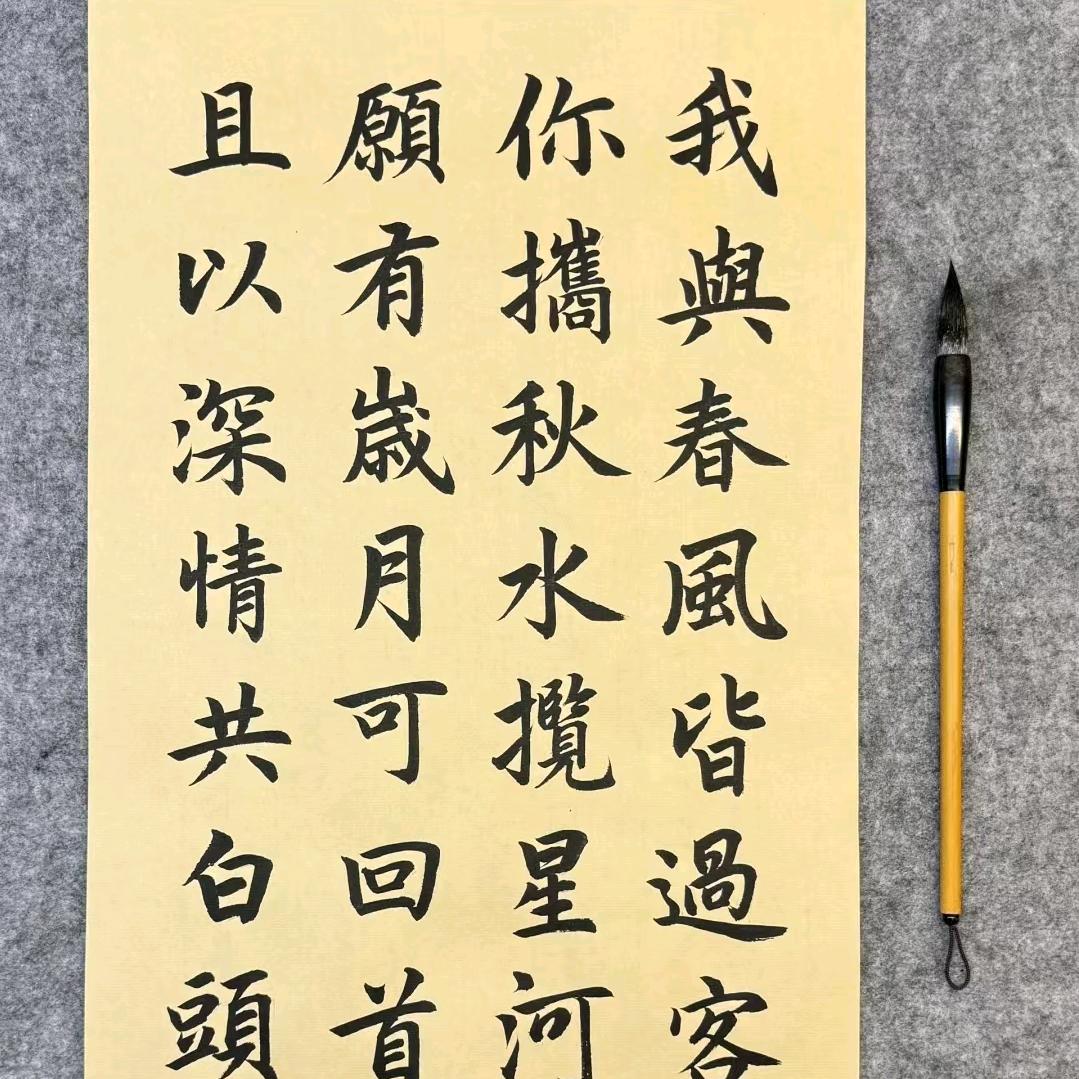 我與春風皆過客
你攜秋水攬星河
願有歲月可回首
且以深情共白頭